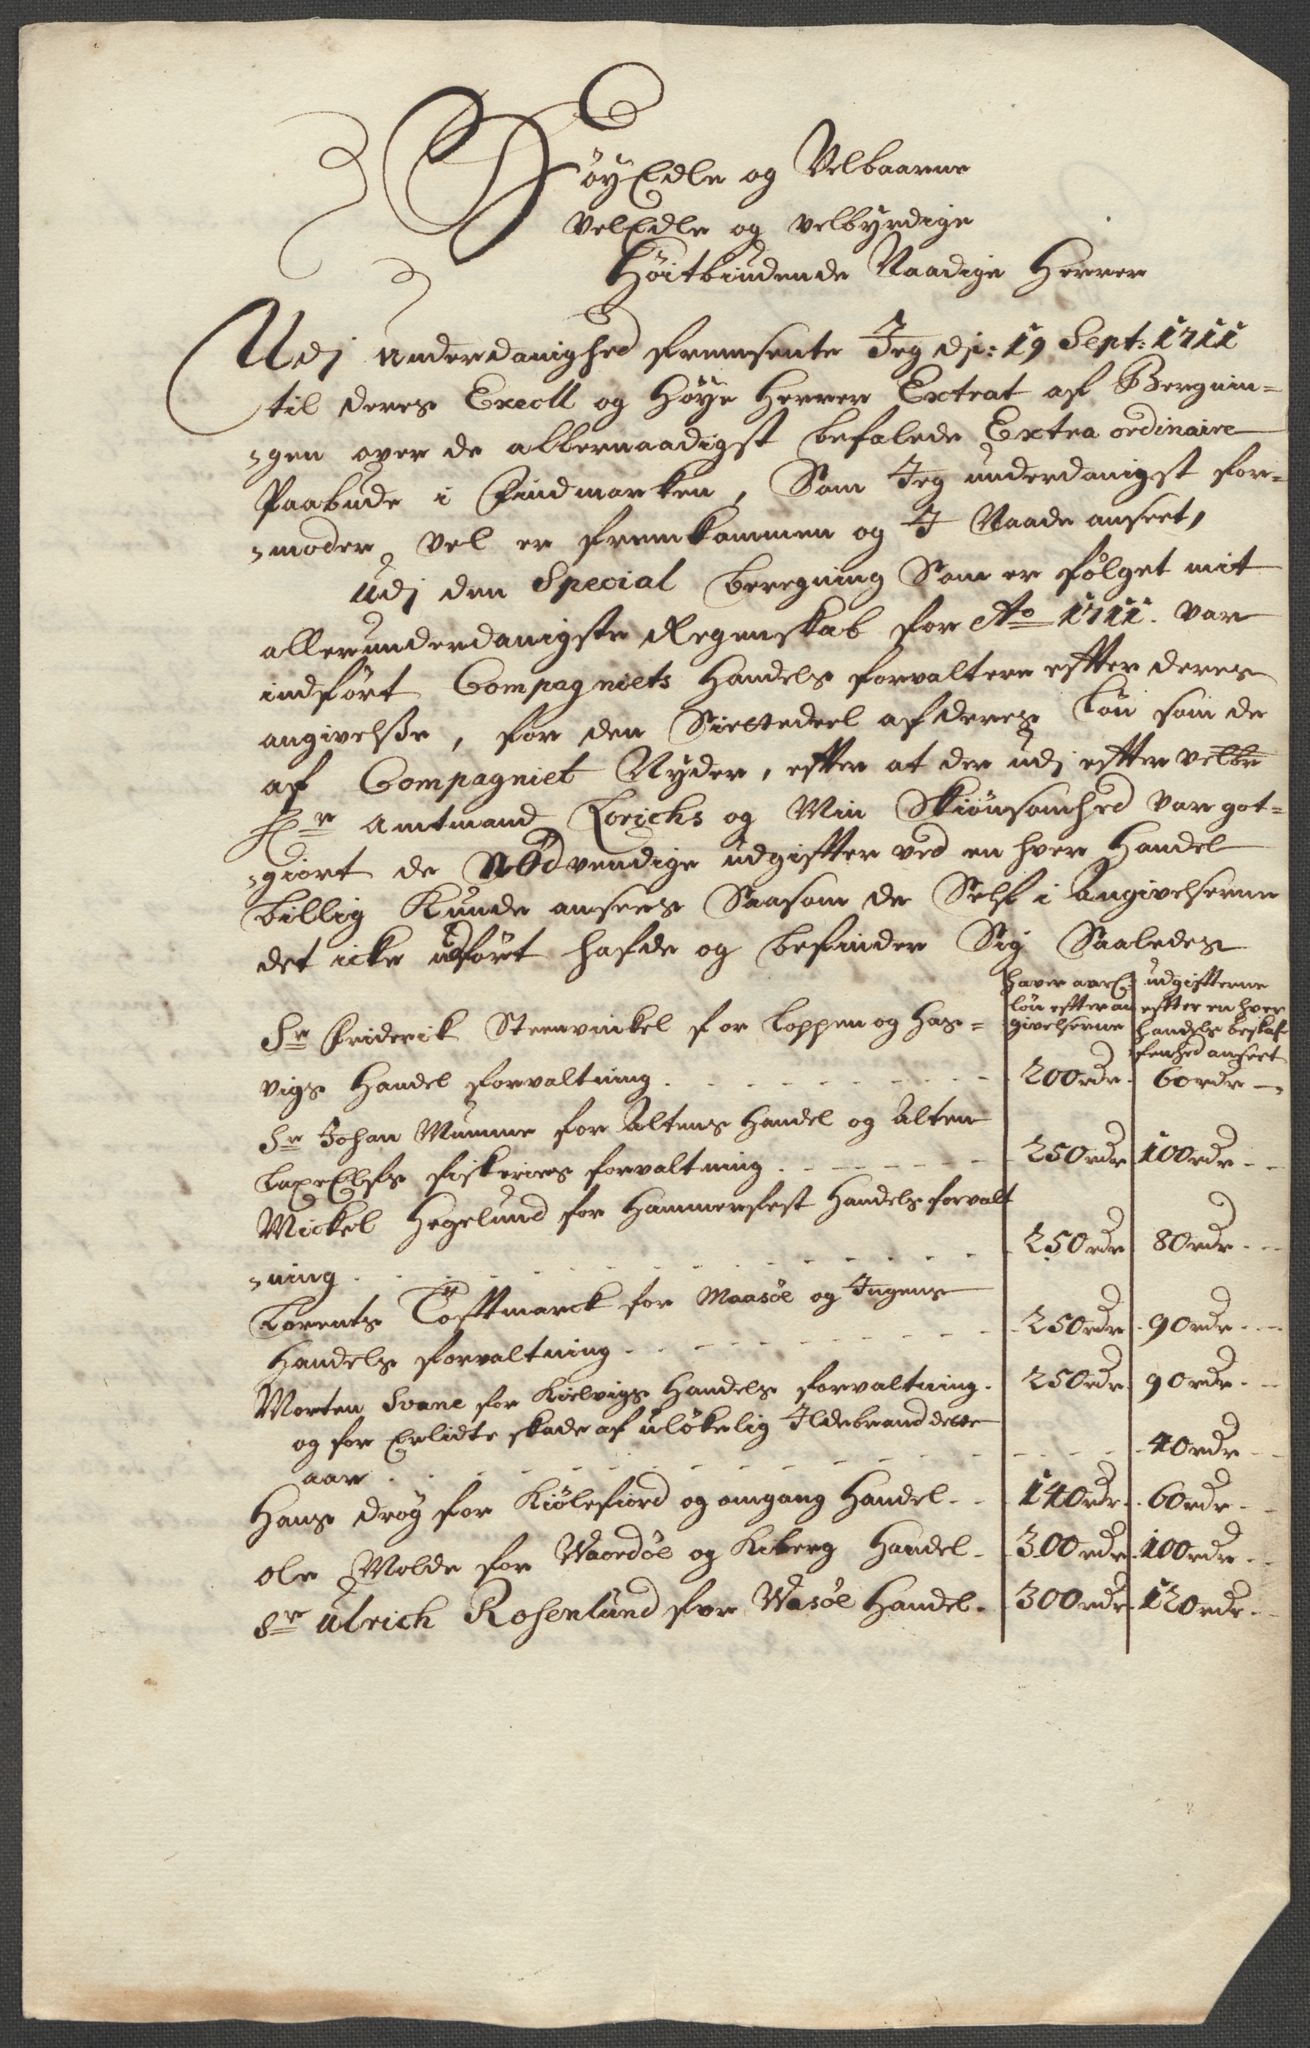 HöyEdle og Velbaarne
VelEdle og velbyrdige
Höitbiudende Naadige Herrer
Udj underdanighed fremsente Jeg dj: 19 Sept: 1711
til deres Execll og Höye Herrer Extrat af Bergnin=
=gen over de allernaadigst befalede Extra ordinaire
Paabude i Findmarken, Som Jeg underdanigst for=
=moder, vel er fremkommen og I Naade anseet,
Udj den Special beregning Som er fölget mit
allerunderdanigste Regenskab for Ao 1711. var
indfört Compagniets Handels forvaltere effter deres
angivelsse, for den Siettedeel af deres Lön som de
af Compagniet Nyder, effter at der udj effter velbr
Hr Amtmand Lorichs og Min Skiönsomhed var got=
=giort de Nödvendige udgiffter ved en hver Handel
billig Kunde ansees Saasom de Self i Angivelserne
det icke udfört hafde og befinder Sig Saaledes
haver aarl lön effter an givelserne
udgiffterne effter en hver handels beskaf fenhed anseet
Sr Friderik Steenvinkel for Loppen og Has=
vigs Handel forvaltning . 200 rdr. 60 rdr
Sr Johan Mumme for Altens Handel og Alten
LaxeElfs fiskeries forvaltning . 250 rdr 100 rdr
Mickel Hegelund for Hammerfest Handels forvalt
=ning . 250 rdr 80 rdr
Lorents Töfftmarck for Maasöe og Ingens
Handels forvaltning . 250 rdr 90 rdr
Morten Svane for Kielvigs Handels forvaltning . 250 rdr 90 rdr
og for Erlidte skade af ulökelig Ildebrand dette
aar . 40 rdr
Hans Drög for Kiölefiord og omgang Handel . 140 rdr 60 rdr
Ole Molde for Waardöe og Kiberg Handel . 300 rdr 100 rdr
Sr Ulrich Rosenlund for Wasöe Handel . 300 rdr 120 rdr